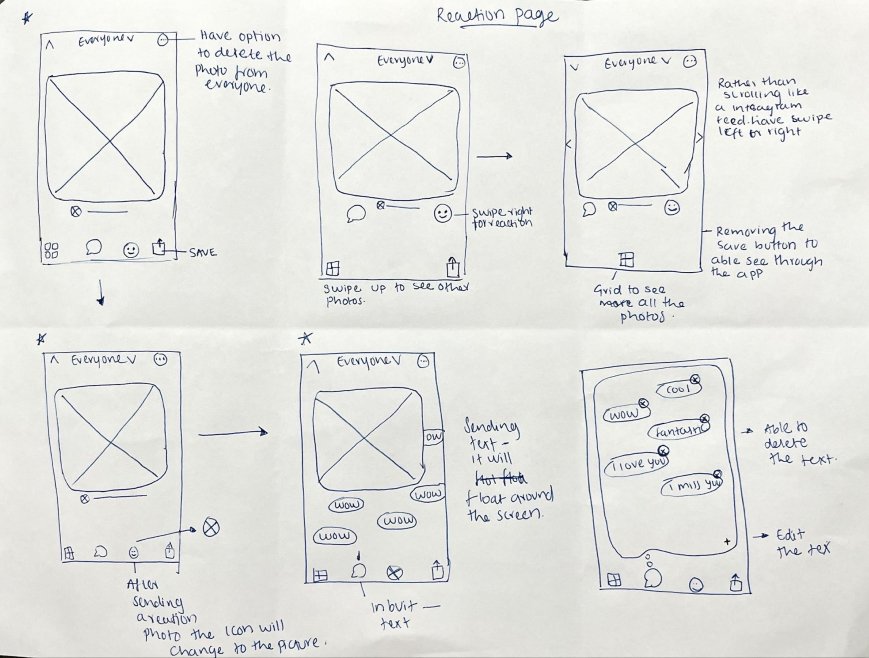 Reaction page
Everyone
Have option
to delete the
photo from
everyone.
SAVE
Everyone
Swipe right
for reaction
Swipe up to see other
Photos.
Everyone
Rather than
scrolling like
a intsagram
feed. have swipe
left or right
Removing the
Save button to
able see through
the app
Grid to see
all the
photos.
Everyone
After
sending
a reaction
photo the Icon will
Change to the picture.
Everyone
OW
WOW
WOW
WOW
WOW
Sending
text -
it will
float around
the screen.
In buit
text
COOl
WOW
fantastic
I love you
I miss you
Able to
delete
the text.
Edit
the tex